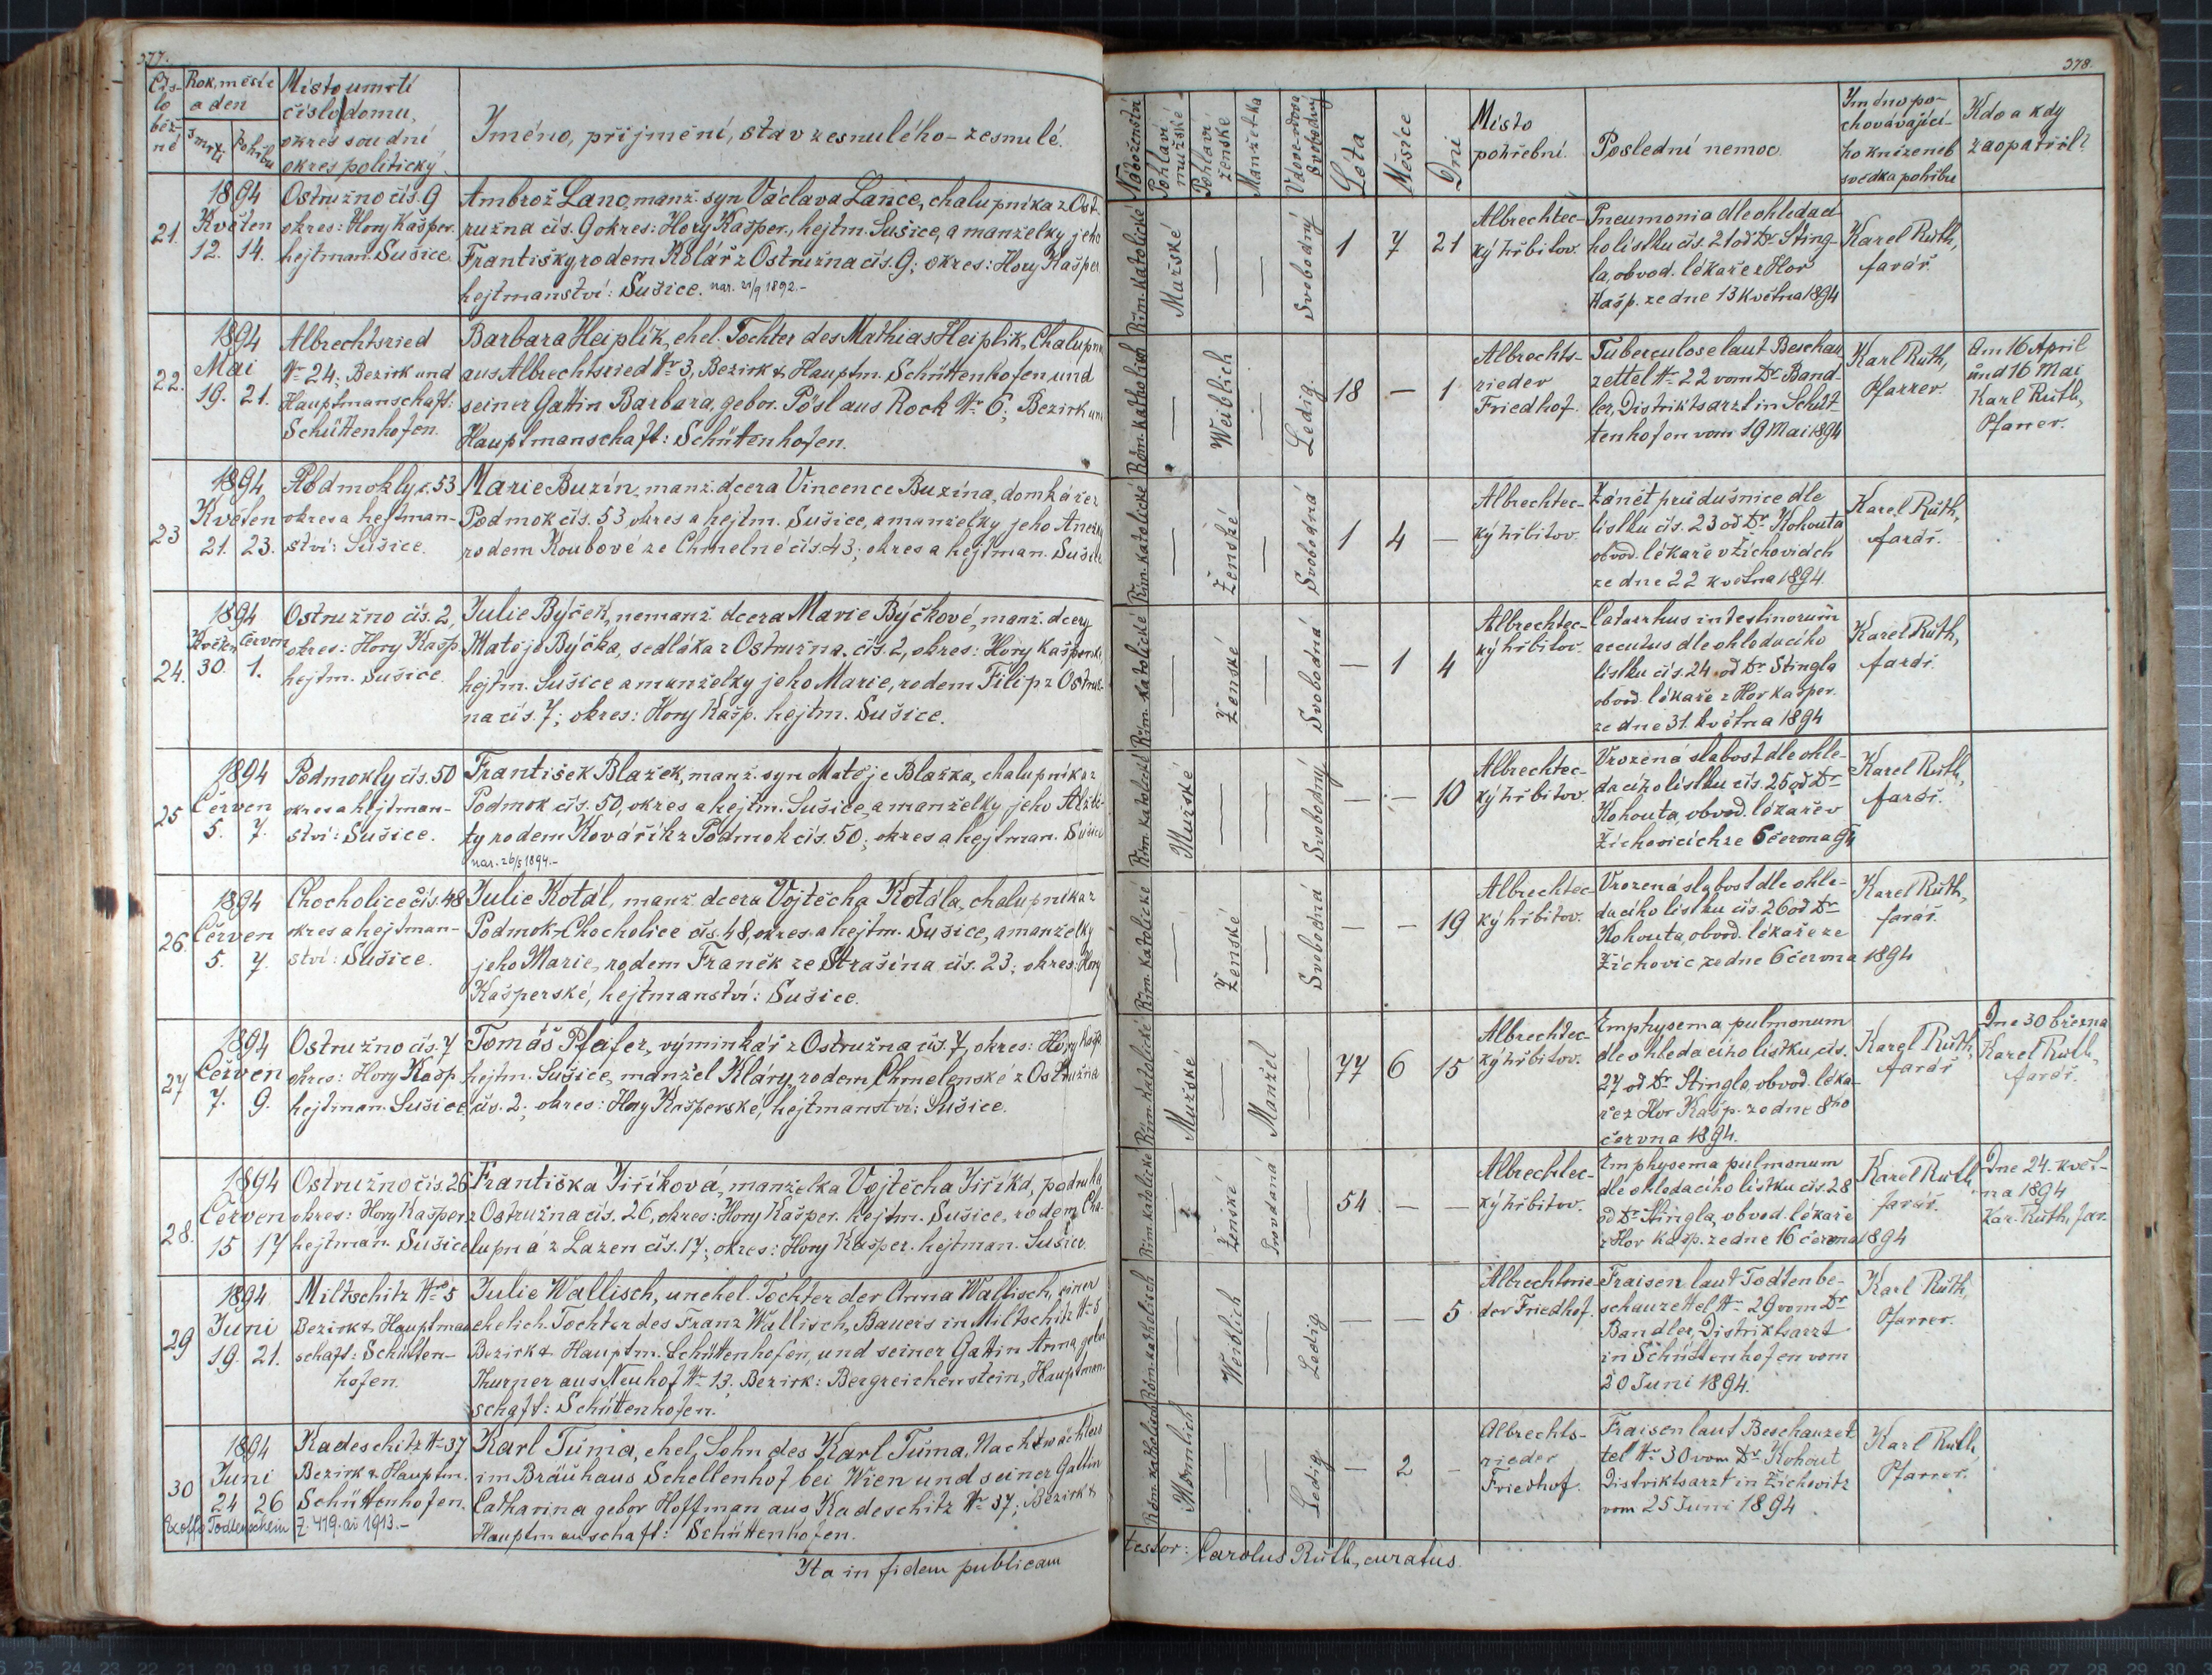 377.
Čís-
lo
běž-
né
Rok, měsíc
a den
smrti
Pohřbu
Místo umrtí
číslo domu,
okres soudní
okres politický
Jméno, příjmění, stav zesnulého - zesnulé.
21.
1894
Květen
12. 14.
Ostružno čís. 9
okres: Hory Kašper.
hejtman. Sušice
Ambrož Lanc, manž. syn Václava Lance, chalupníka z Ost-
ružna čís. 9 okres: Hory Kašper., hejtm. Sušice, a manželky jeho
Františky rodem Kolář z Ostružna čís. 9; okres: Hory Kašper
hejtmanství: Sušice. nar. 21/9 1892.-
22.
1894
Mai
19. 21.
Albrechtsried
Nr 24; Bezirk und
Hauptmanschaft:
Schüttenhofen.
Barbara Heiplik, ehel. Tochter des Mathias Heiplik, Chalupn
aus Albrechtsried Nr 3, Bezirk & Hauptm. Schüttenhofen und
seiner Gattin Barbara, gebor. Pösl aus Rock Nr 6; Bezirk und
Hauptmanschaft: Schüttenhofen.
23
1894
Květen
21. 23.
Podmokly č. 53
okres a hejtman-
ství: Sušice.
Marie Buzín, manž. dcera Vincence Buzína, domkáře z
Podmok čís. 53 okres a hejtm. Sušice, a manželky jeho Anežky
rodem Koubové ze Chmelné čís. 43; okres a hejtman. Sušice
24.
1894
Květen Červen
30. 1.
Ostružno čís. 2,
okres: Hory Kašp.
hejtm. Sušice
Julie Býček, nemanž. dcera Marie Býčkové, manž. dcery
Matěje Býčka, sedláka z Ostružna čís. 2, okres: Hory Kašpersk.
hejtm. Sušice a manželky jeho Marie, rodem Filip z Ostruž-
na čís. 7; okres: Hory Kašp. hejtm. Sušice.
25
1894
Červen
5. 7.
Podmokly čís. 50
okres a hejtman-
ství: Sušice.
František Blažek, manž. syn Matěje Blažka, chalupníka z
Podmok čís. 50, okres a hejtm. Sušice, a manželky jeho Alžbě-
ty rodem Kovářík z Podmok čís. 50; okres a hejtman. Sušice
nar. 26/5 1894.-
26.
1894
Červen
5. 7.
Chocholice čís. 48
okres a hejtman-
ství: Sušice.
Julie Kotál, manž. dcera Vojtěcha Kotála, chalupníka z
Podmok-Chocholice čís. 48, okres a hejtm. Sušice, a manželky
jeho Marie, rodem Franěk ze Strašína čís. 23; okres: Hory
Kašperské, hejtmanství: Sušice.
27
1894
Červen
7. 9.
Ostružno čís. 7
okres: Hory Kašp.
hejtman. Sušice
Tomáš Pfeifer, výminkář z Ostružna čís. 7, okres: Hory Kašp.
hejtm. Sušice, manžel Kláry, rodem Chmelenské z Ostružna
čís. 2; okres: Hory Kašperské, hejtmanství: Sušice.
28.
1894
Červen
15 17
Ostružno čís. 26
okres: Hory Kašper.
hejtman. Sušice
Františka Jiříková, manželka Vojtěcha Jiříka, podruha
z Ostružna čís. 26, okres: Hory Kašper. hejtm. Sušice, rodem Cha-
lupná z Lazen čís. 17; okres: Hory Kašper. hejtman. Sušice.
29
1894
Juni
19. 21.
Miltschitz Nr 5
Bezirk & Hauptman
schaft: Schütten-
hofen.
Julie Wallisch, unehel. Tochter der Anna Wallisch, einer
ehelich. Tochter des Franz Wallisch, Bauers in Miltschitz Nr 5
Bezirk & Hauptm. Schüttenhofen, und seiner Gattin Anna, gebor
Thurner aus Neuhof Nr 13. Bezirk: Bergreichenstein, Hauptman-
schaft: Schüttenhofen.
30
1894
Juni
24 26
Ex offo Todtenschein Z. 419. ai 1913.-
Kadeschitz Nr 37
Bezirk & Hauptm.
Schüttenhofen.
Karl Tůma, ehel. Sohn des Karl Tůma, Nachtwächters
im Bräuhaus Schellenhof bei Wien und seiner Gattin
Catharina gebor Hoffman aus Kadeschitz Nr 37; Bezirk &
Hauptmanschaft: Schüttenhofen.
Ita in fidem publicam
378.
Náboženství
Pohlaví mužské
Pohlaví ženské
Manžel-ka
Vdovec-vdova Svobodný
Léta
Měsíce
Dni
Místo
pohřební.
Poslední nemoc.
Jméno po-
chovávající-
ho kněze neb
svědka pohřbu
Kdo a kdy
zaopatřil?
Řím. katolické
Mužské
Svobodný
1 7 21
Albrechtec-
ký hřbitov.
Pneumonia dle ohledací-
ho lístku čís. 21 od Dr Sting-
la, obvod. lékaře z Hor
Kašp. ze dne 13 května 1894
Karel Ruth,
farář.
Röm. katholisch
Weiblich
Ledig.
18 — 1
Albrechts-
rieder
Friedhof.
Tuberculose laut Beschau
zettel Nr 22 vom Dr Band-
ler, Distriktsarzt in Schüt-
tenhofen vom 19 Mai 1894
Karl Ruth,
Pfarrer.
Am 16 April
und 16 Mai
Karl Ruth,
Pfarrer.
Řím. katolické
Ženské
Svobodná
1 4 —
Albrechtec-
ký hřbitov.
Zánět průdušnice dle
lístku čís. 23 od Dr Kohouta
obvod. lékaře v Žichovicích
ze dne 22 května 1894.
Karel Ruth,
farář.
Řím. katolické
Ženské
Svobodná
— 1 4
Albrechtec-
ký hřbitov.
Catarrhus intestinorum
accutus dle ohledacího
lístku čís. 24 od Dr Stingla
obvod. lékaře z Hor Kašper.
ze dne 31. května 1894
Karel Ruth,
farář.
Řím. katolické
Mužské
Svobodný
— — 10
Albrechtec-
ký hřbitov.
Vrozená slabost dle ohle-
dacího lístku čís. 25 od Dr
Kohouta, obvod. lékaře v
Žichovicích ze 6 června 94
Karel Ruth,
farář.
Řím. katolické
Ženské
Svobodná
— — 19
Albrechtec-
ký hřbitov.
Vrozená slabost dle ohle-
dacího lístku čís. 26 od Dr
Kohouta, obvod. lékaře ze
Žichovic, ze dne 6 června 1894
Karel Ruth,
farář.
Řím. katolické
Mužské
Manžel
77 6 15
Albrechtec-
ký hřbitov.
Emphysema pulmonum
dle ohledacího lístku čís.
27 od Dr Stingla, obvod. léka-
ře z Hor Kašp. ze dne 8ho
června 1894.
Karel Ruth,
farář
Dne 30 března
Karel Ruth,
farář.
Řím. katolické
Ženské
Provdaná
54 — —
Albrechtec-
ký hřbitov.
Emphysema pulmonum
dle ohledacího lístku čís. 28
od Dr Stingla, obvod. lékaře
z Hor Kašp. ze dne 16 června 1894
Karel Ruth
farář.
Dne 24. květ-
na 1894
Kar. Ruth, far.
Röm. katholisch
Weiblich
Ledig
— — 5
Albrechtsrie-
der Friedhof.
Fraisen laut Todtenbe-
schauzettel Nr 29 vom Dr
Bandler, Distriktsarzt
in Schüttenhofen vom
20 Juni 1894.
Karl Ruth,
Pfarrer.
Röm. katholisch
Männlich
Ledig
— 2 —
Albrechts-
rieder
Friedhof.
Fraisen laut Beschauzet
tel Nr 30 vom Dr Kohout
Distriktsarzt in Žichowitz
vom 25 Juni 1894
Karl Ruth,
Pfarrer.
testor: Carolus Ruth, curatus.